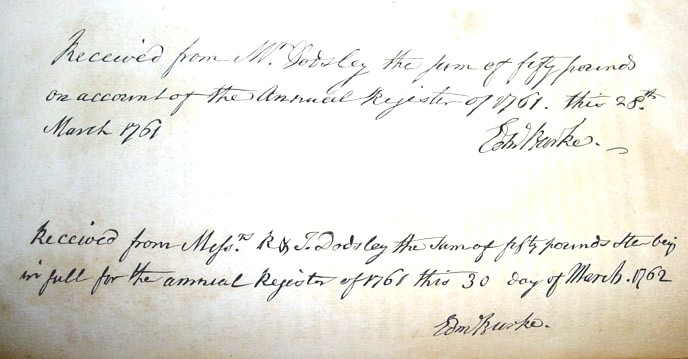 Received from Mr. Dodsley the sum of fifty pounds
on account of the Annual Register of 1761. this 28.th
March 1761
Edm Burke.
Received from Messrs. R & J. Dodsley the Sum of fifty pounds Ste being
in full for the annual Register of 1761 this 30 day of March. 1762
Edm Burke.